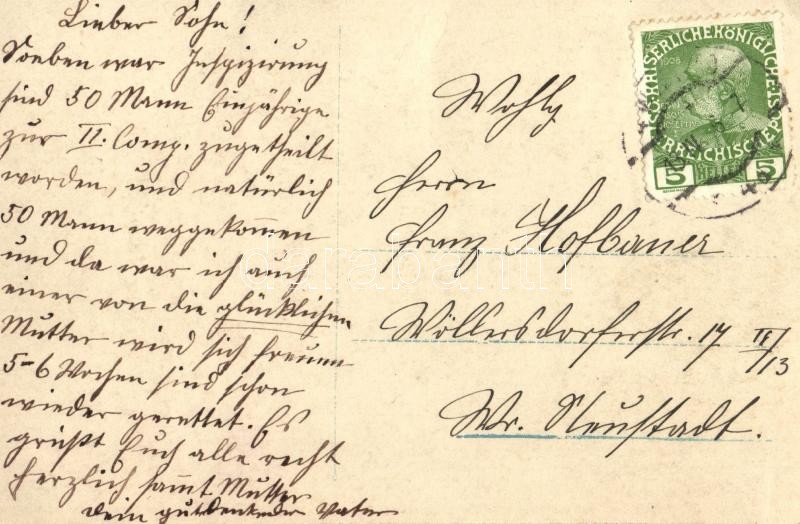 Lieber Sohn!
Soeben war Inspizirung
sind 50 Mann Einjährige
zur II. Comp. zugetheilt
worden, und natürlich
50 Mann weggekommen
und da war ich auch
einer von die glücklichen
Mutter wird sich freuen
5-6 Wochen sind schon
wieder gerettet. Es
grüßt Euch alle recht
herzlich sammt Mutter
Dein gutdenkender Vater
Wohlg
Herrn
Franz Hofbauer
Wöllersdorferstr. 17 II/13
Wr. Neustadt.
KAISERLICHEKÖNIGLICHE
ÖSTERREICHISCHEPOST
1908
5 HELLER 5
darabanth